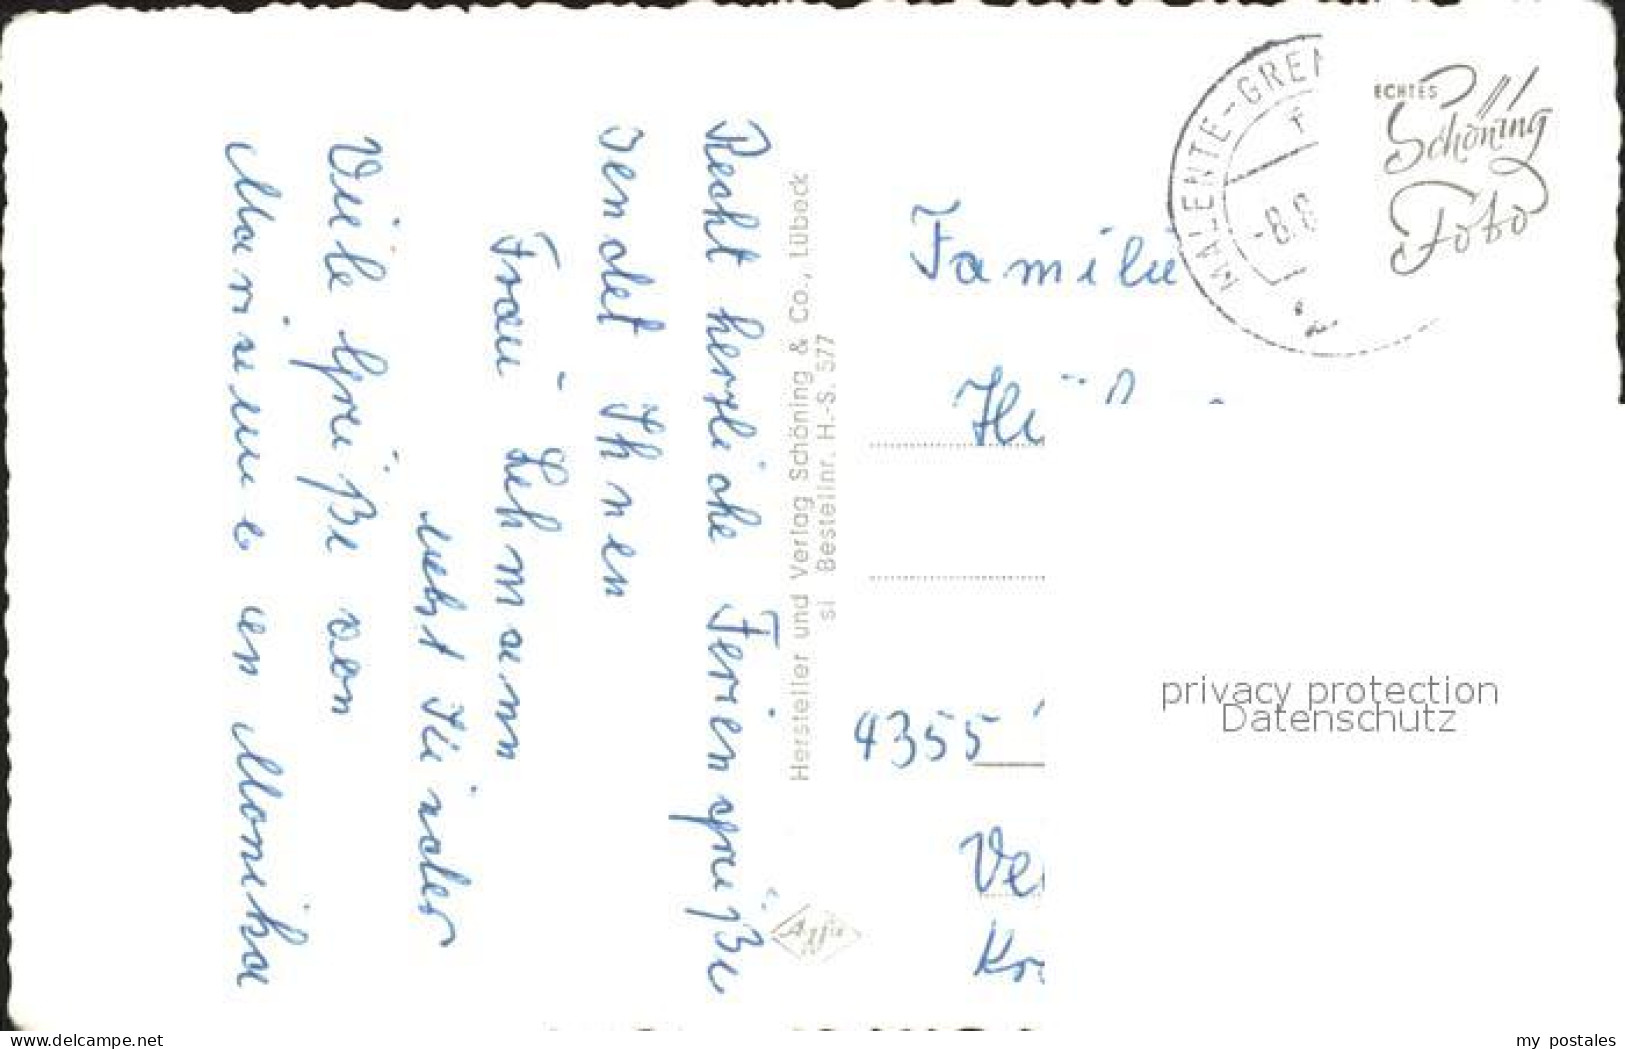 Recht herzliche Feriengrüße
sendet Ihnen
Frau Lehmann
nebst Kinder
Viele Grüße von
Marianne an Monika
Hersteller und Verlag Schöning & Co., Lübeck
si Bestellnr. H.-S. 577
Agfa
MALENTE-GREM
-8.8
ECHTES
Schöning
Foto
Familie
4355
privacy protection
Datenschutz
www.delcampe.net
my_postales